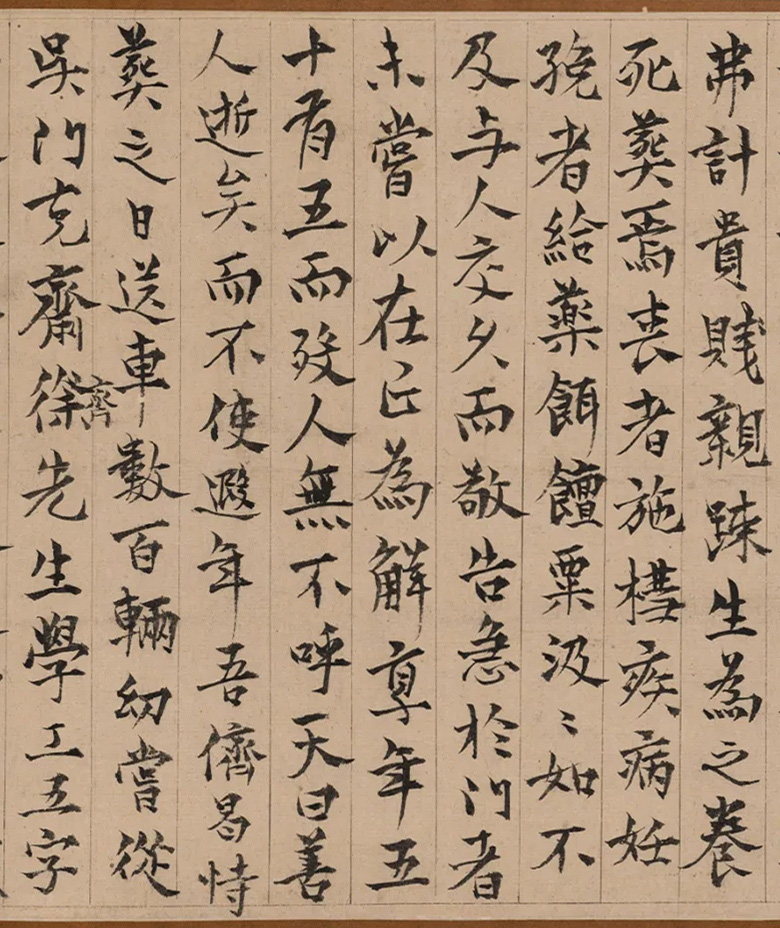 弗計貴賤親踈生為之養
死葬焉喪者施槥疾病妊
娩者給藥餌饘粟汲〻如不
及与人交久而敬告急於门者
未嘗以在亡為解享年五
十有五而殁人無不呼天曰善
人逝矣而不使遐年吾儕曷恃
葬之日送車數百輛幼嘗從
吳门克齋徐先生學工五字
齊